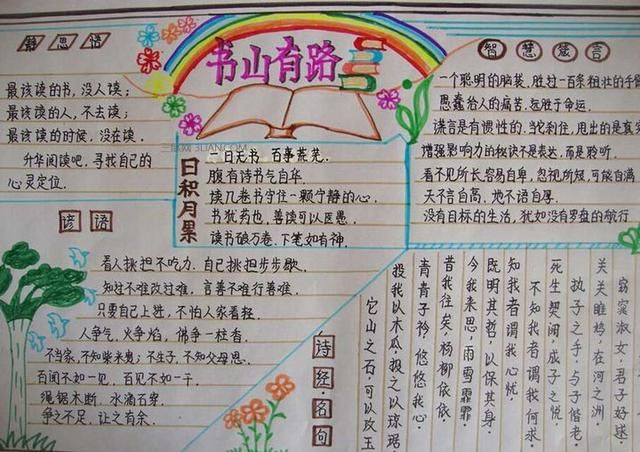 书山有路
静思语
最该读的书,没人读;
最该读的人,不去读;
最该读的时候,没在读.
升华阅读吧,寻找自己的
心灵定位.
日积月累
一日无书 百事荒芜.
腹有诗书气自华.
读几卷书守住一颗宁静的心.
书犹药也,善读可以医愚.
读书破万卷,下笔如有神.
智慧箴言
一个聪明的脑袋,胜过一百条粗壮的手
愚蠢给人的痛苦,远胜于命运.
谎言是有惯性的,当它刹住,甩出的是真
增强影响力的秘诀不是表达,而是聆听.
看不见所长,容易自卑,忽视所短,可能自满
天不言自高,地不语自厚.
没有目标的生活,犹如没有罗盘的航行
谚语
看人挑担不吃力,自己挑担步步歇.
知过不难改过难,言善不难行善难.
只要自己上进,不怕人家看轻.
人争气,火争焰,佛争一柱香.
不当家,不知柴米贵;不生子,不知父母恩.
百闻不如一见,百见不如一干.
绳锯木断,水滴石穿.
争之不足,让之有余.
诗经·名句
窈窕淑女,君子好逑.
关关雎鸠,在河之洲.
执子之手,与子偕老.
死生契阔,成子之悦.
不知我者谓我何求.
知我者谓我心忧,
既明其哲,以保其身.
今我来思,雨雪霏霏
昔我往矣,杨柳依依.
青青子衿,悠悠我心
投我以木瓜,投之以琼琚.
它山之石,可以攻玉